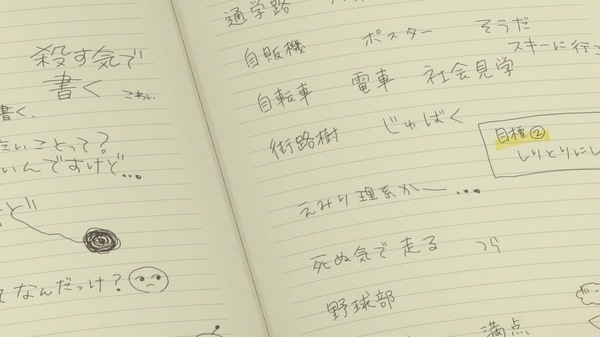 殺す気で
書く こわい
書く.
たいことって?
いんですけど...
けど
てなんだっけ?
通学路
自販機 ポスター そうだ
スキーに行こ
自転車 電車 社会見学
街路樹 じゅばく
目標②
しりとりにし
えみり理系かー...
死ぬ気で走る つら
野球部
満点